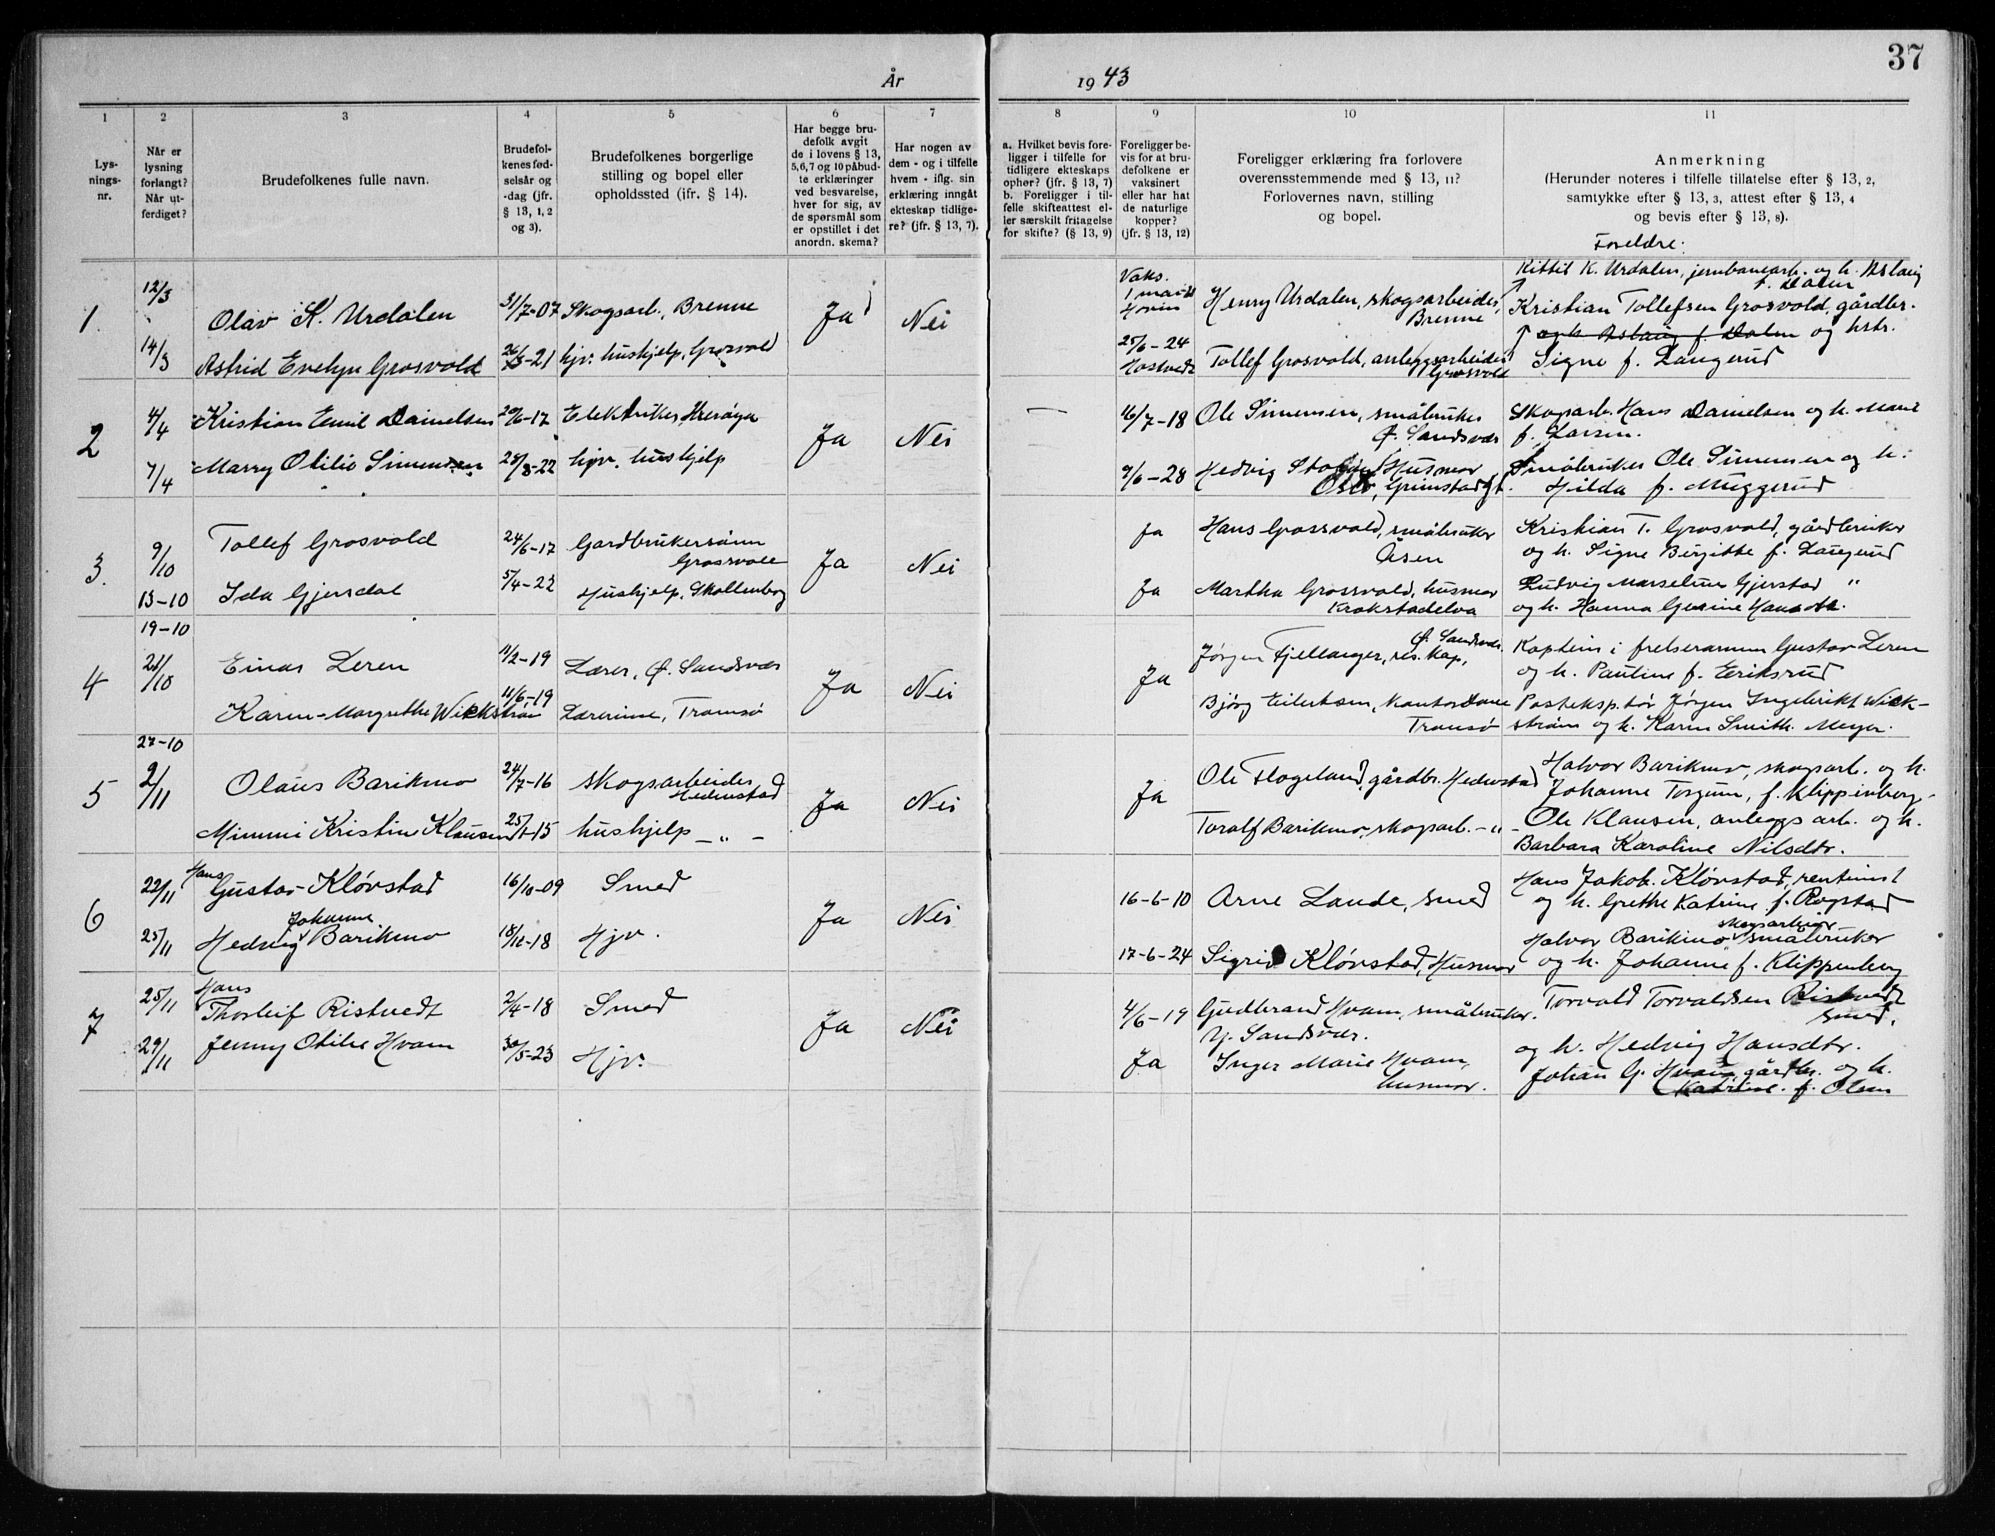 37
År 1943
1 2 3 4 5 6 7 8 9 10 11
Lys-
nings-
nr.
Når er
lysning
forlangt?
Når ut-
ferdiget?
Brudefolkenes fulle navn.
Brudefol-
kenes fød-
selsår og
-dag (jfr.
§ 13, 1, 2
og 3).
Brudefolkenes borgerlige
stilling og bopel eller
opholdssted (ifr. § 14).
Har begge bru-
defolk avgit
de i lovens § 13,
5,6,7 og 10 påbud-
te erklæringer
ved besvarelse,
hver for sig, av
de spørsmål som
er opstillet i det
anordn. skema?
Har nogen av
dem - og i tilfelle
hvem - iflg. sin
erklæring inngåt
ekteskap tidlige-
re? (jfr. § 13, 7).
a. Hvilket bevis fore-
ligger i tilfelle for
tidligere ekteskaps
ophør? (jfr. § 13, 7)
b. Foreligger i til-
felle skifteattest el-
ler særskilt fritagelse
for skifte? (§ 13, 9)
Foreligger be-
vis for at bru-
defolkene er
vaksinert
eller har hat
de naturlige
kopper?
(jfr. § 13, 12)
Foreligger erklæring fra forlovere
overensstemmende med § 13, 11?
Forlovernes navn, stilling
og bopel.
Anmerkning
(Herunder noteres i tilfelle tillatelse efter § 13, 2,
samtykke efter § 13, 3, attest efter § 13, 4
og bevis efter § 13, 8).
Foreldre:
1
12/3
14/3
Olav K. Urdalen
Astrid Evelyn Grosvold
31/7-07
-21
Skogsarb., Brenne
hjv. hushjelp, Grosvold
Ja
Nei
Vaks.
Hovin
25/6-24
Hostvedt
Henry Urdalen, skogsarbeider,
Brenne
Tollef Grosvold, anleggsarbeider
Grosvold
Kittil K. Urdalen, jernbanearb. og h. Aslaug
f. Dalen
Kristian Tollefsen Grosvold, gårdbr.
og h. Aslaug f. Dalen og hstr.
Signe f. Langerud
2
4/4
7/4
Kristian Emil Danielsen
Marry Otilie Simensen
20/6-17
28/8-22
Elektriker, Herøya
hjv. hushjelp
Ja
Nei
—
16/7-18
9/6-28
Ole Simensen, småbruker
Ø. Sandsvær
Hedvig Husmor
Oslo, Grimstadgt.
Skogsarb. Hans Danielsen og h. Marie
f. Larsen.
Småbruker Ole Simensen og h:
Hilda f. Muggerud
3.
9/10
13-10
Tollef Grosvold
Ida Gjersdal
24/6-17
5/4-22
Gardbrukersønn
Grosvold
Hushjelp, Skollenborg
Ja
Nei
Ja
Ja
Hans Grossvold, småbruker
Åsen
Martha Grossvold, husmor
Krokstadelva
Kristian T. Grosvold, gårdbruker
og h. Signe Birgitte f. Langerud
Ludvig Marselius Gjerstad "
og h. Hanna
4
19-10
21/10
Einar Leren
Karen-Margrethe Wickstrøm
11/2-19
11/6-19
Lærer, Ø. Sandsvær
Lærerinne, Tromsø
Ja
Nei
Ja
Jørgen Fjellanger, res. kap,
Ø. Sandsvær
Bjørg Eilertsen, kontordame
Tromsø
Kaptein i frelsesarmeen Gustav Leren
og h. Pauline f. Eriksrud
Posteksp.tør Jørgen Ingebrikt Wick-
strøm og h. Karen Smith. Meyer.
5
27-10
2/11
Olaus Barikmo
Mimmi Kristine Klausen
24/7-16
25/1-15
skogsarbeider
Hedenstad
hushjelp — „ —
Ja
Nei
Ja
Ole Flogeland, gårdbr. Hedenstad
Toralf Barikmo, skogsarb. - „ -
Halvor Barikmo, skogsarb. og h.
Johanne Torgine, f. Klippenberg-
Ole Klausen, anleggsarb. og h.
Barbara Karoline Nilsdtr.
6
22/11
25/11
Hans
Gustav Kløvstad
Johanne
Hedvig Barikmo
16/10-09
18/12-18
Smed
Hjv.
Ja
Nei
16-6-10
17-6-24
Arne Lande, smed
Sigrid Kløvstad, Husmor
Hans Jakob. Kløvstad, rentenist
og h. Grethe Katrine f. Rogstad
skogsarbeider
Halvor Barikmo småbruker
og h. Johanne f. Klippenberg
7
25/11
29/11
Hans
Thorleif Ristvedt
Jenny Otilie Hvam
2/4-18
30/5-23
Smed
Hjv.
Ja
Nei
4/6-19
Ja
Gudbrand Hvam, småbruker.
Y. Sandsvær.
Inger Marie Hvam,
husmor.
Torvald Torvaldsen Ristvedt
smed,
og h. Hedvig Hansdtr.
Johan G. Hvam, gårdbr. og h.
Katrine. f. Olsen